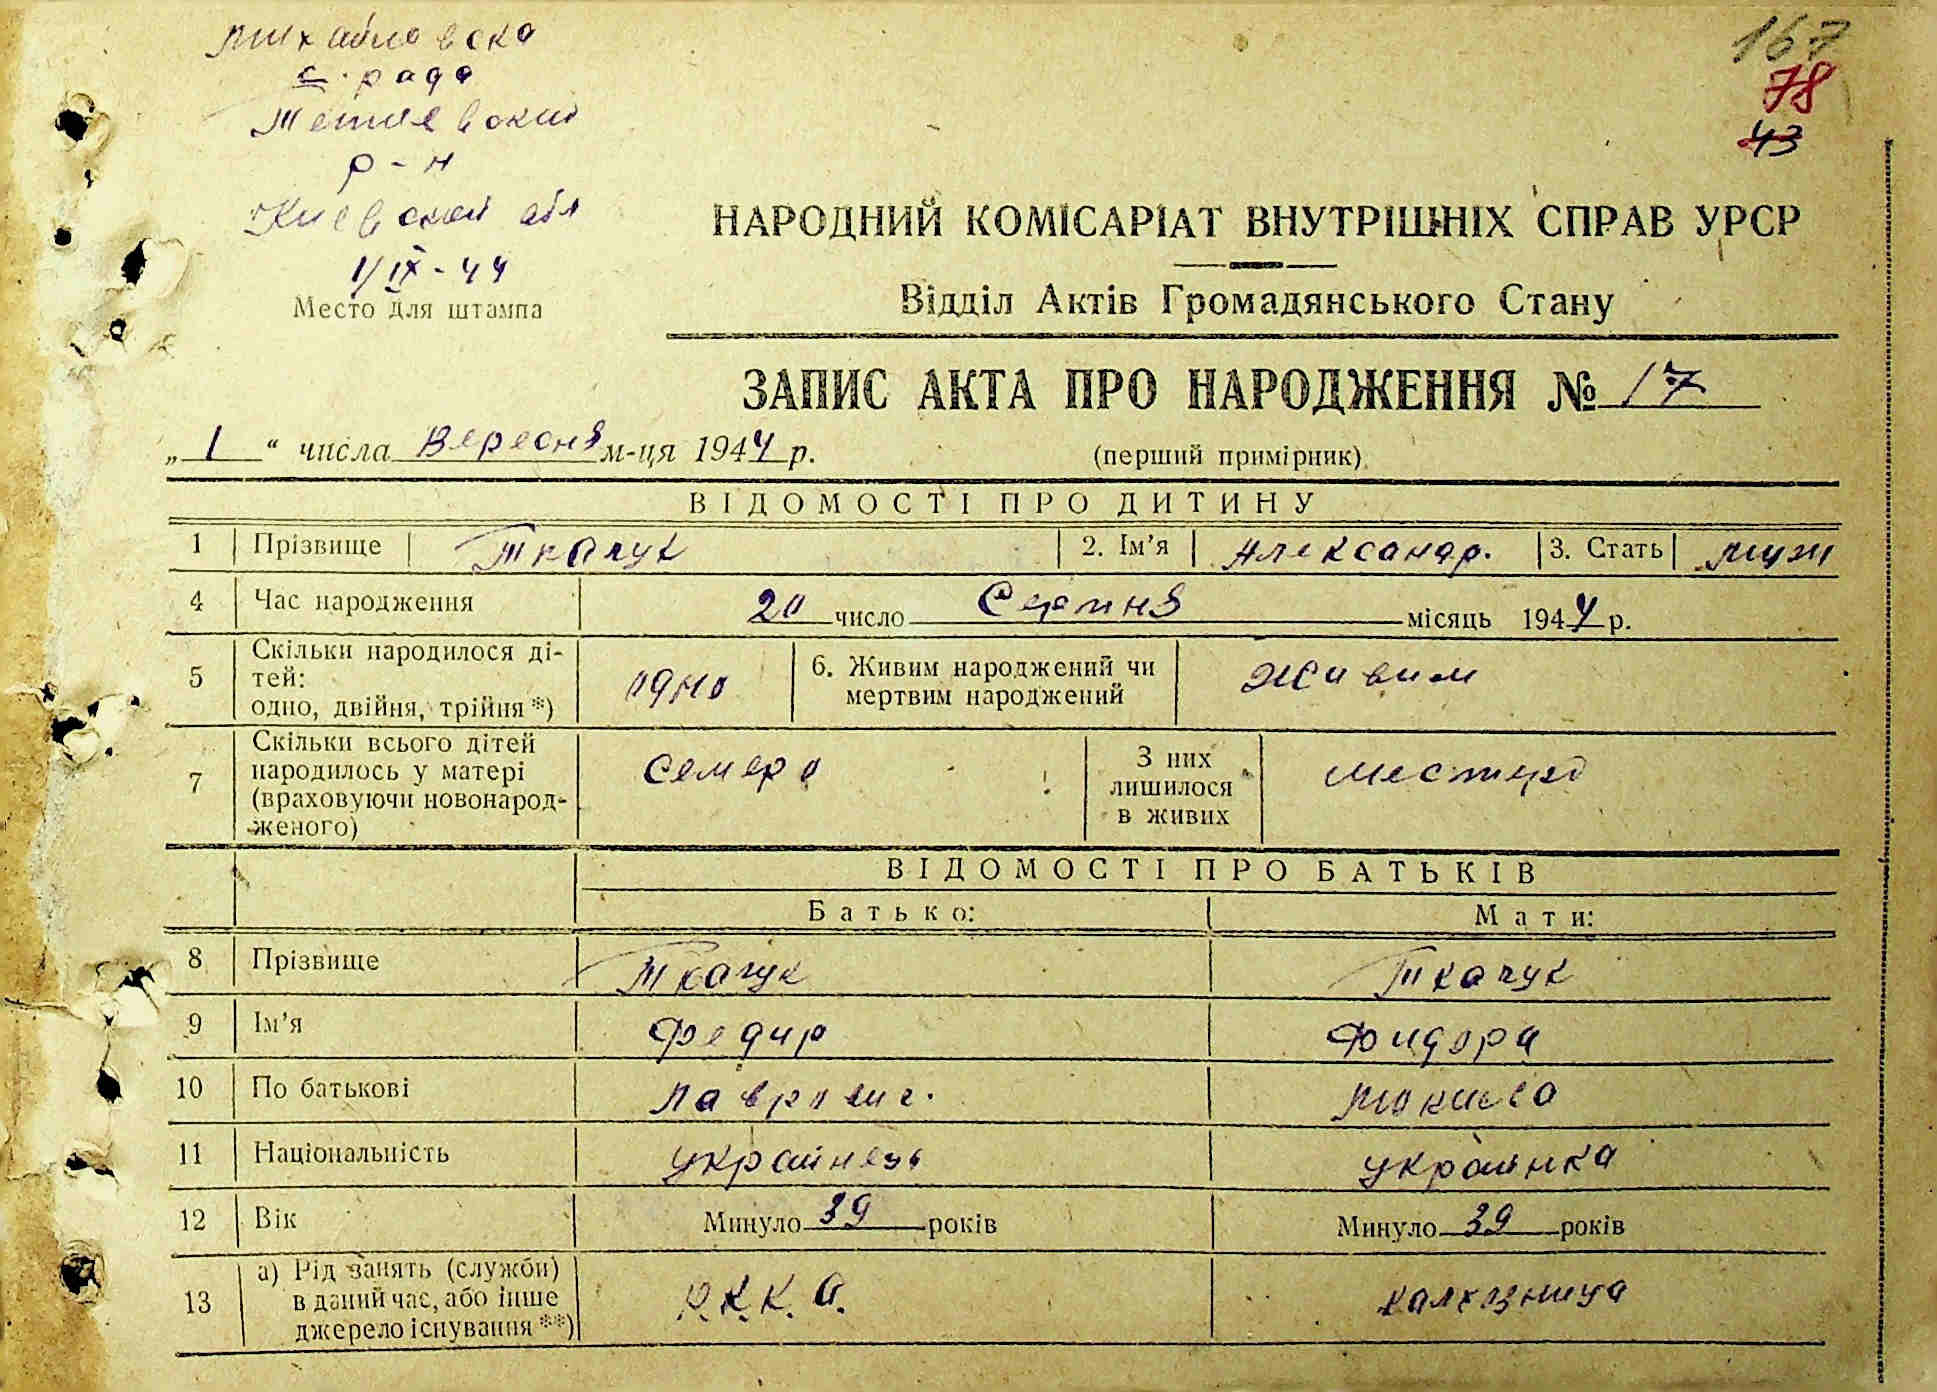 Михайловска
с. рада
Тетиевский
р-н
Киевской обл
1/IX-44
Место для штампа
167
78
43
НАРОДНИЙ КОМІСАРІАТ ВНУТРІШНІХ СПРАВ УРСР
Відділ Актів Громадянського Стану
ЗАПИС АКТА ПРО НАРОДЖЕННЯ № 17
„ 1 “ числа Вересня м-ця 1944 р. (перший примірник)
ВІДОМОСТІ ПРО ДИТИНУ
1 Прізвище Ткачук 2. Ім’я Александр. 3. Стать муж
4 Час народження 20 число Серпня місяць 1944 р.
5 Скільки народилося ді-
тей:
одно, двійня, трійня *) одно 6. Живим народжений чи
мертвим народжений Живим
7 Скільки всього дітей
народилось у матері
(враховуючи новонарод-
женого) Семеро З них
лишилося
в живих
ВІДОМОСТІ ПРО БАТЬКІВ
Батько: Мати:
8 Прізвище Ткачук Ткачук
9 Ім’я Федир Фидора
10 По батькові Лаврович.
11 Національність українець українка
12 Вік Минуло 39 років Минуло 39 років
13 а) Рід занять (служби)
в даний час, або інше
джерело існування **) Р.К.К.А. калхозница